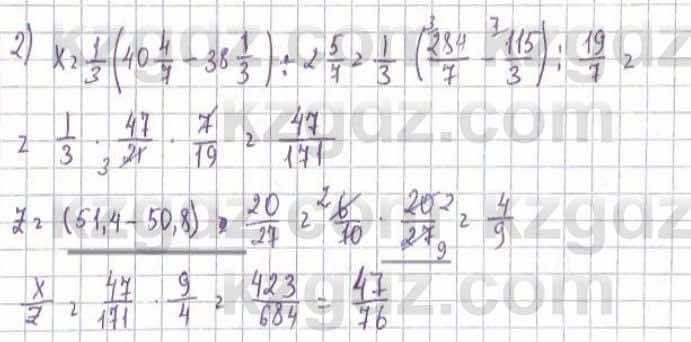 2) x = 1/3 (40 4/7 - 38 1/3) : 2 5/7 = 1/3 (³284/7 - ⁷115/3) : 19/7 =
= 1/3 · 47/21 3 · 7/19 = 47/171
z = (51,4 - 50,8) · 20/27 = ² 6/10 · 20 2/27 9 = 4/9
x/z = 47/171 · 9/4 = 423/684 = 47/76
kzgdz.com